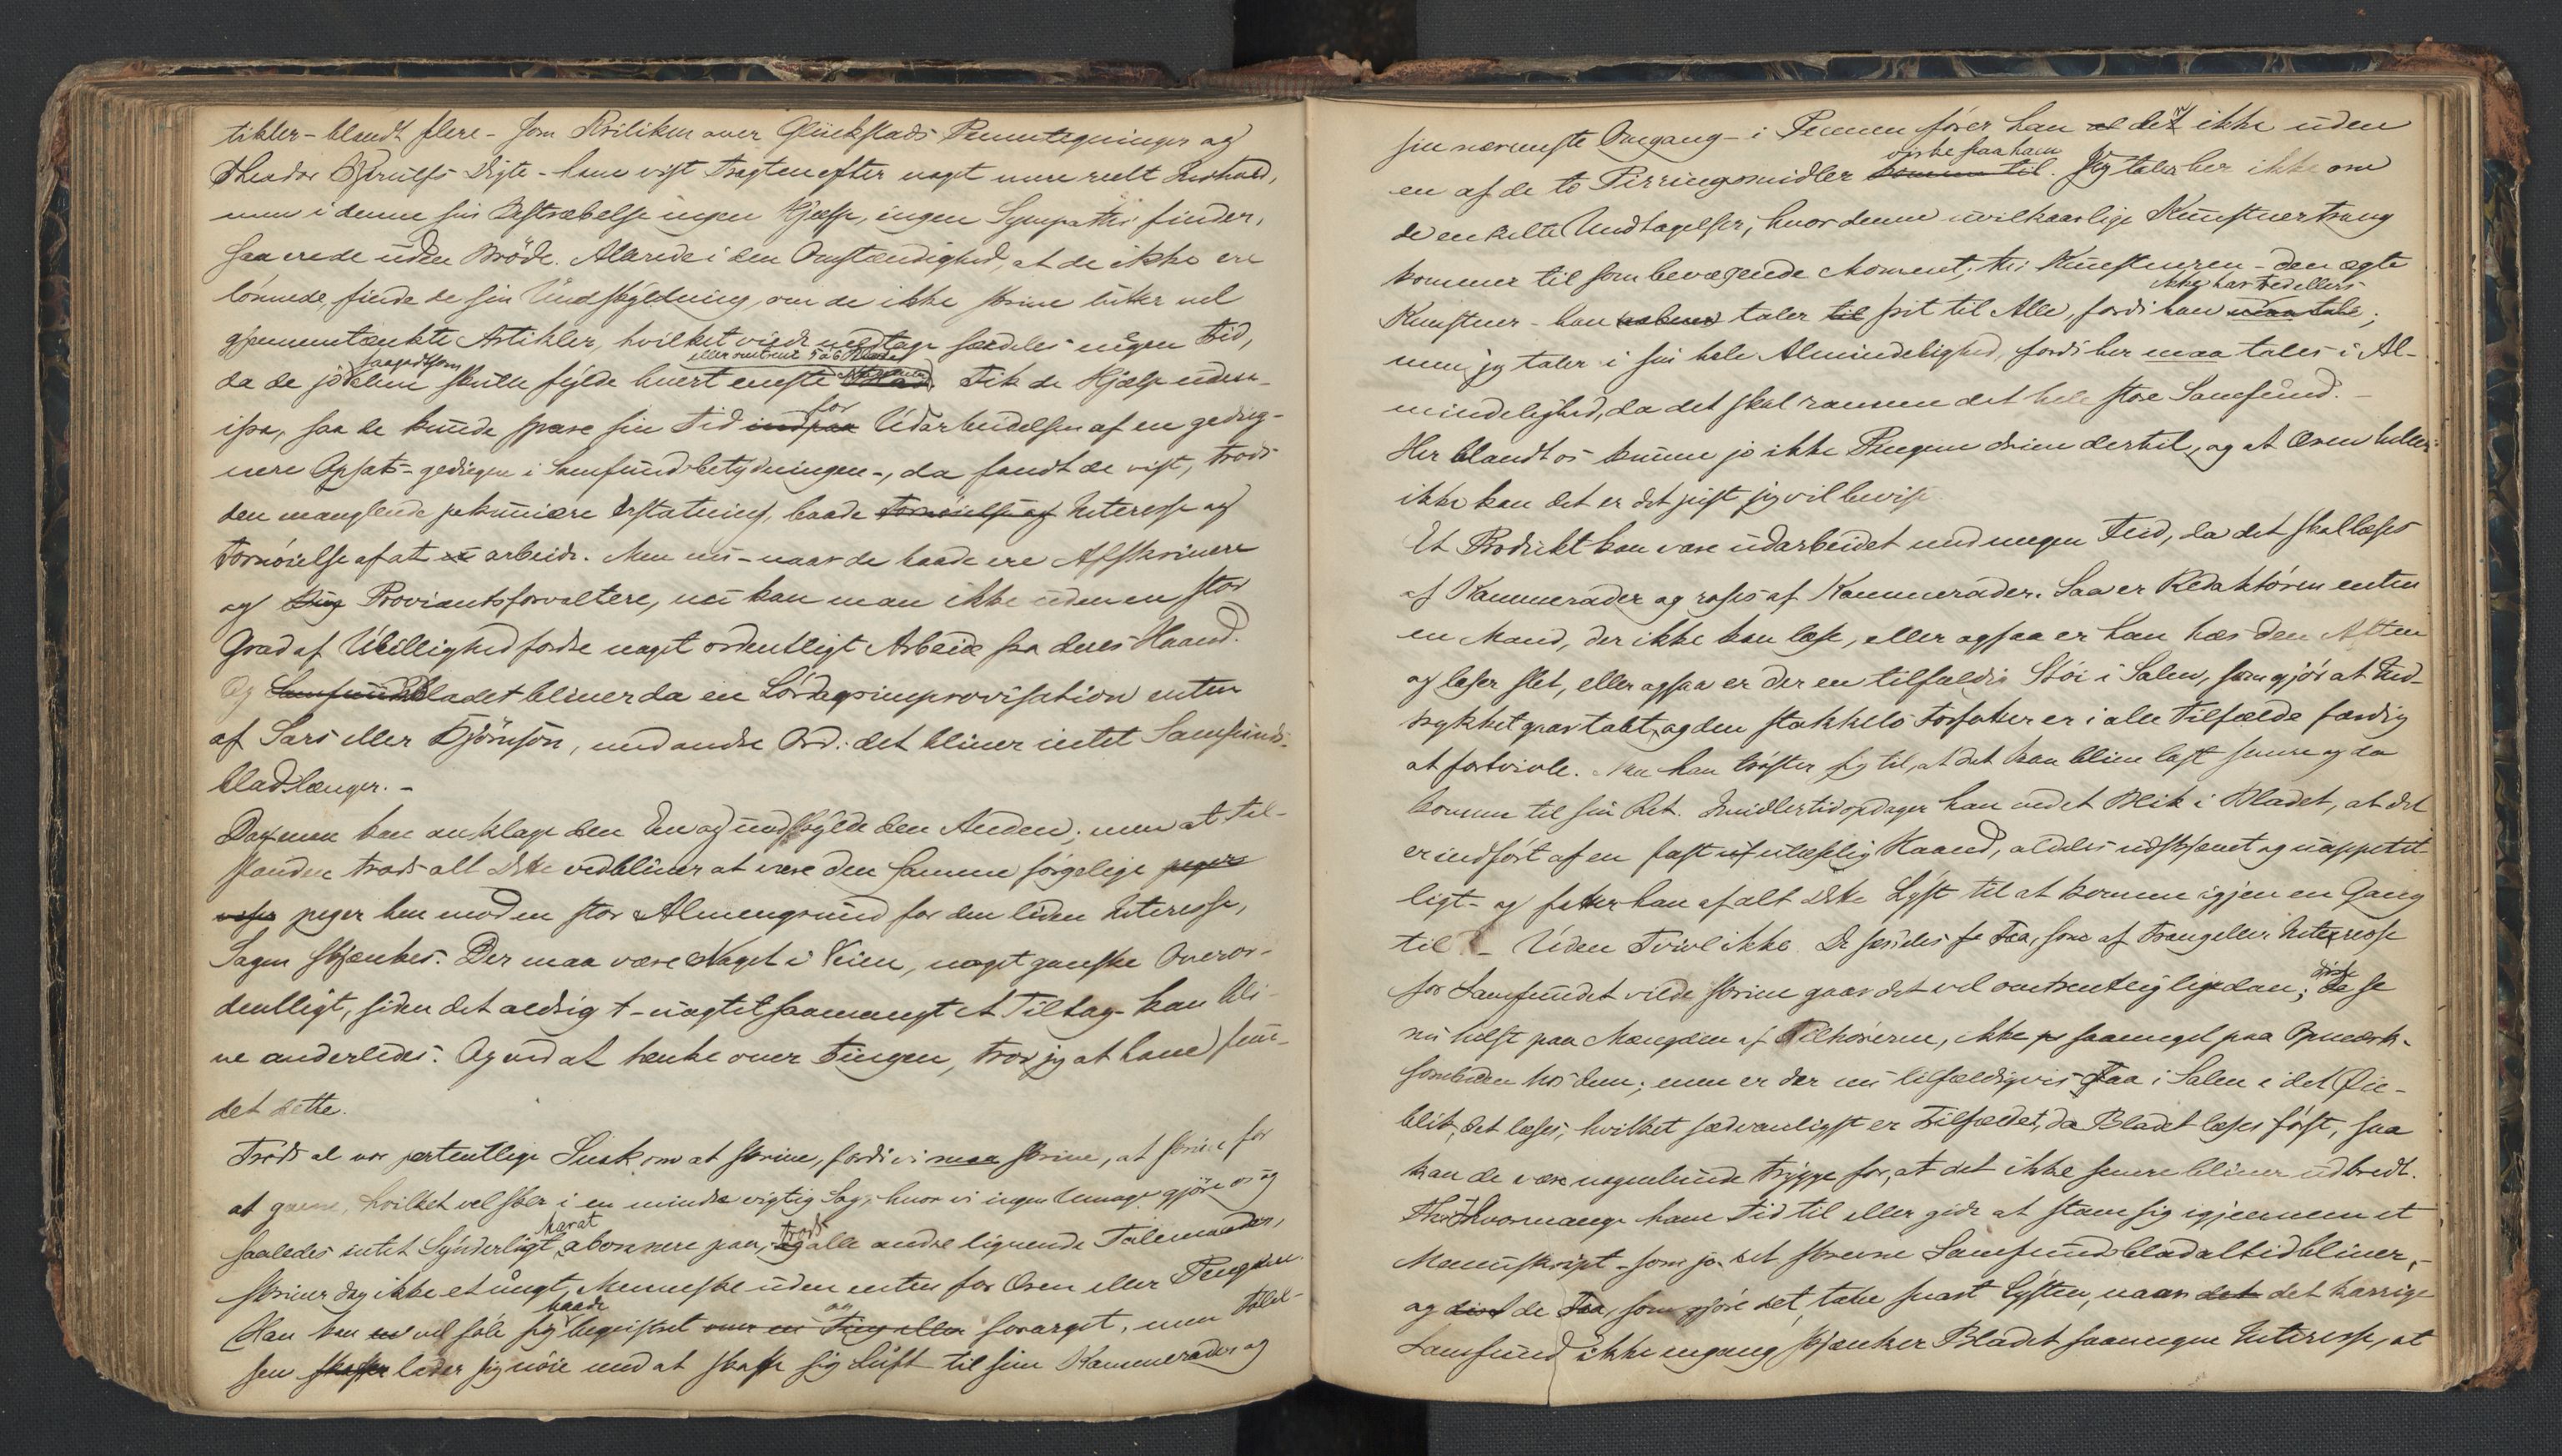 tikler - blandt flere - som Kritiken over Glückstads Pennetegninger og
Theodor Kjerulfs Digte - have vist Tragten efter noget mere reelt Indhold,
men i denne sin Bestræbelse ingen Hjælp, ingen Sympathi finder,
saa ere de uden Brøde. Allerede i den Omstændighed, at de ikke ere
lønnede, finde de sin Undskyldning, om de ikke skrive lutter vel
gjennemtænkte Artikler, hvilket vilde medtage særdeles megen Tid,
da de jo saagodtsom alene skulle fylde hvert eneste eller omtrent 5 à 6 Blade. Fik de Hjælp uden-
ifra, saa de kunde spare sin Tid ind paa for Udarbeidelsen af en gedieg-
nere Opsats - gediegen i Samfundsbetydningen -, da fandt de vist, trods
den manglende pekuniære Erstatning, baade Fornøielse og Interesse og
Fornøielse af at arbeide. Men nu - naar de baade ere Afskrivere
og Proviantsforvaltere, nu kan man ikke uden en stor
Grad af Ubillighed fordre noget ordentligt Arbeide fra deres Haand.
Og Samfundsbladet bliver da en Lørdagsimprovisation enten
af Sars eller Bjørnson, med andre Ord: det bliver intet Samfunds-
blad længer. -
Dog man kan anklage den Ene og undskylde den Anden; men at Til-
standen trods alt dette vedbliver at være den samme sørgelige peger
viser peger hen mod en stor Almengrund for den liden Interesse,
Sagen skjænkes. Der maa være Noget i Veien, noget ganske Overor-
dentligt, siden det aldrig - uagtet saamangt et Tiltag - kan bli-
ve anderledes. Og ved at tænke over Tingen, tror jeg at have fun-
det dette.
Trods al vor Snak om at skrive, fordi vi maa skrive, at skrive for
at gavne, hvilket vel sker i en mindre vigtig Sag, hvor vi ingen Umage gjøre os og
saaledes intet Synderligt Marat abonnere paa, og trods alle andre lignende Talemaader,
skriver dog ikke et ungt Menneske uden enten for Æren eller Pengene.
Han kan vel føle sig baade begeistret over en Ting eller og forarget, men
sen skaffer lader sig nøie med at skaffe sig Luft til sine Kammerader og
sin nærmeste Omgang - i Pennen fører han det ikke uden
en af de to Pirringsmidler komme til virke paa ham. Jeg taler her ikke om
de enkelte Undtagelser, hvor denne uvilkaarlige Kunstnertrang
kommer til som bevægende Moment; thi Kunstneren - den ægte
Kunstner - han taler til frit til Alle, fordi han maa tale ikke har Fred ellers;
men jeg taler i sin hele Almindelighed, fordi her maa tales i Al-
mindelighed, da det skal ramme det hele store Samfund. -
Her blandt os kunne jo ikke Pengene drive dertil, og at Æren heller
ikke kan det er det just jeg vil bevise.
Et Produkt kan være udarbeidet med megen Flid, da det skal læses
af Kammerader og roses af Kammerader. Saa er Redaktøren enten
en Mand, der ikke kan læse, eller ogsaa er han hæs den Aften
og læser slet, eller ogsaa er der en tilfældig Støi i Salen, som gjør at Ind-
trykket gaar tabt, og den stakkels Forfatter er i alle Tilfælde færdig
at fortvivle. Men han trøster sig til, at det kan blive læst senere og da
komme til sin Ret. Imidlertid opdager han ved et Blik i Bladet, at det
er indført af en fast ulæselig Haand, aldeles udskjæmt og uappetit-
ligt - og fatter han af alt dette Lyst til at komme igjen en Gang
til? - Uden Tvivl ikke. De særdeles Faa, som af Trang eller Interesse
for Samfundet vilde skrive gaar det vel omtrentlig ligedan; de disse se
nu helst paa Mængden af Tilhørerne, ikke saameget paa Opmærk-
somheden hos dem; men er der nu tilfældigvis Faa i Salen i det Øie-
blik, det læses, hvilket sædvanligst er Tilfældet, da Bladet læses først, saa
kan de være nogenlunde trygge for, at det ikke senere bliver udbredt.
Thi hvormange have Tid til eller gide at stave sig igjennem et
Manuskript - som jo det skrevne Samfundsblad altid bliver, -
og de Faa, som gjøre det, tabe snart Lysten, naar det det karrige
Samfund ikke engang skjænker Bladet saamegen Interesse, at